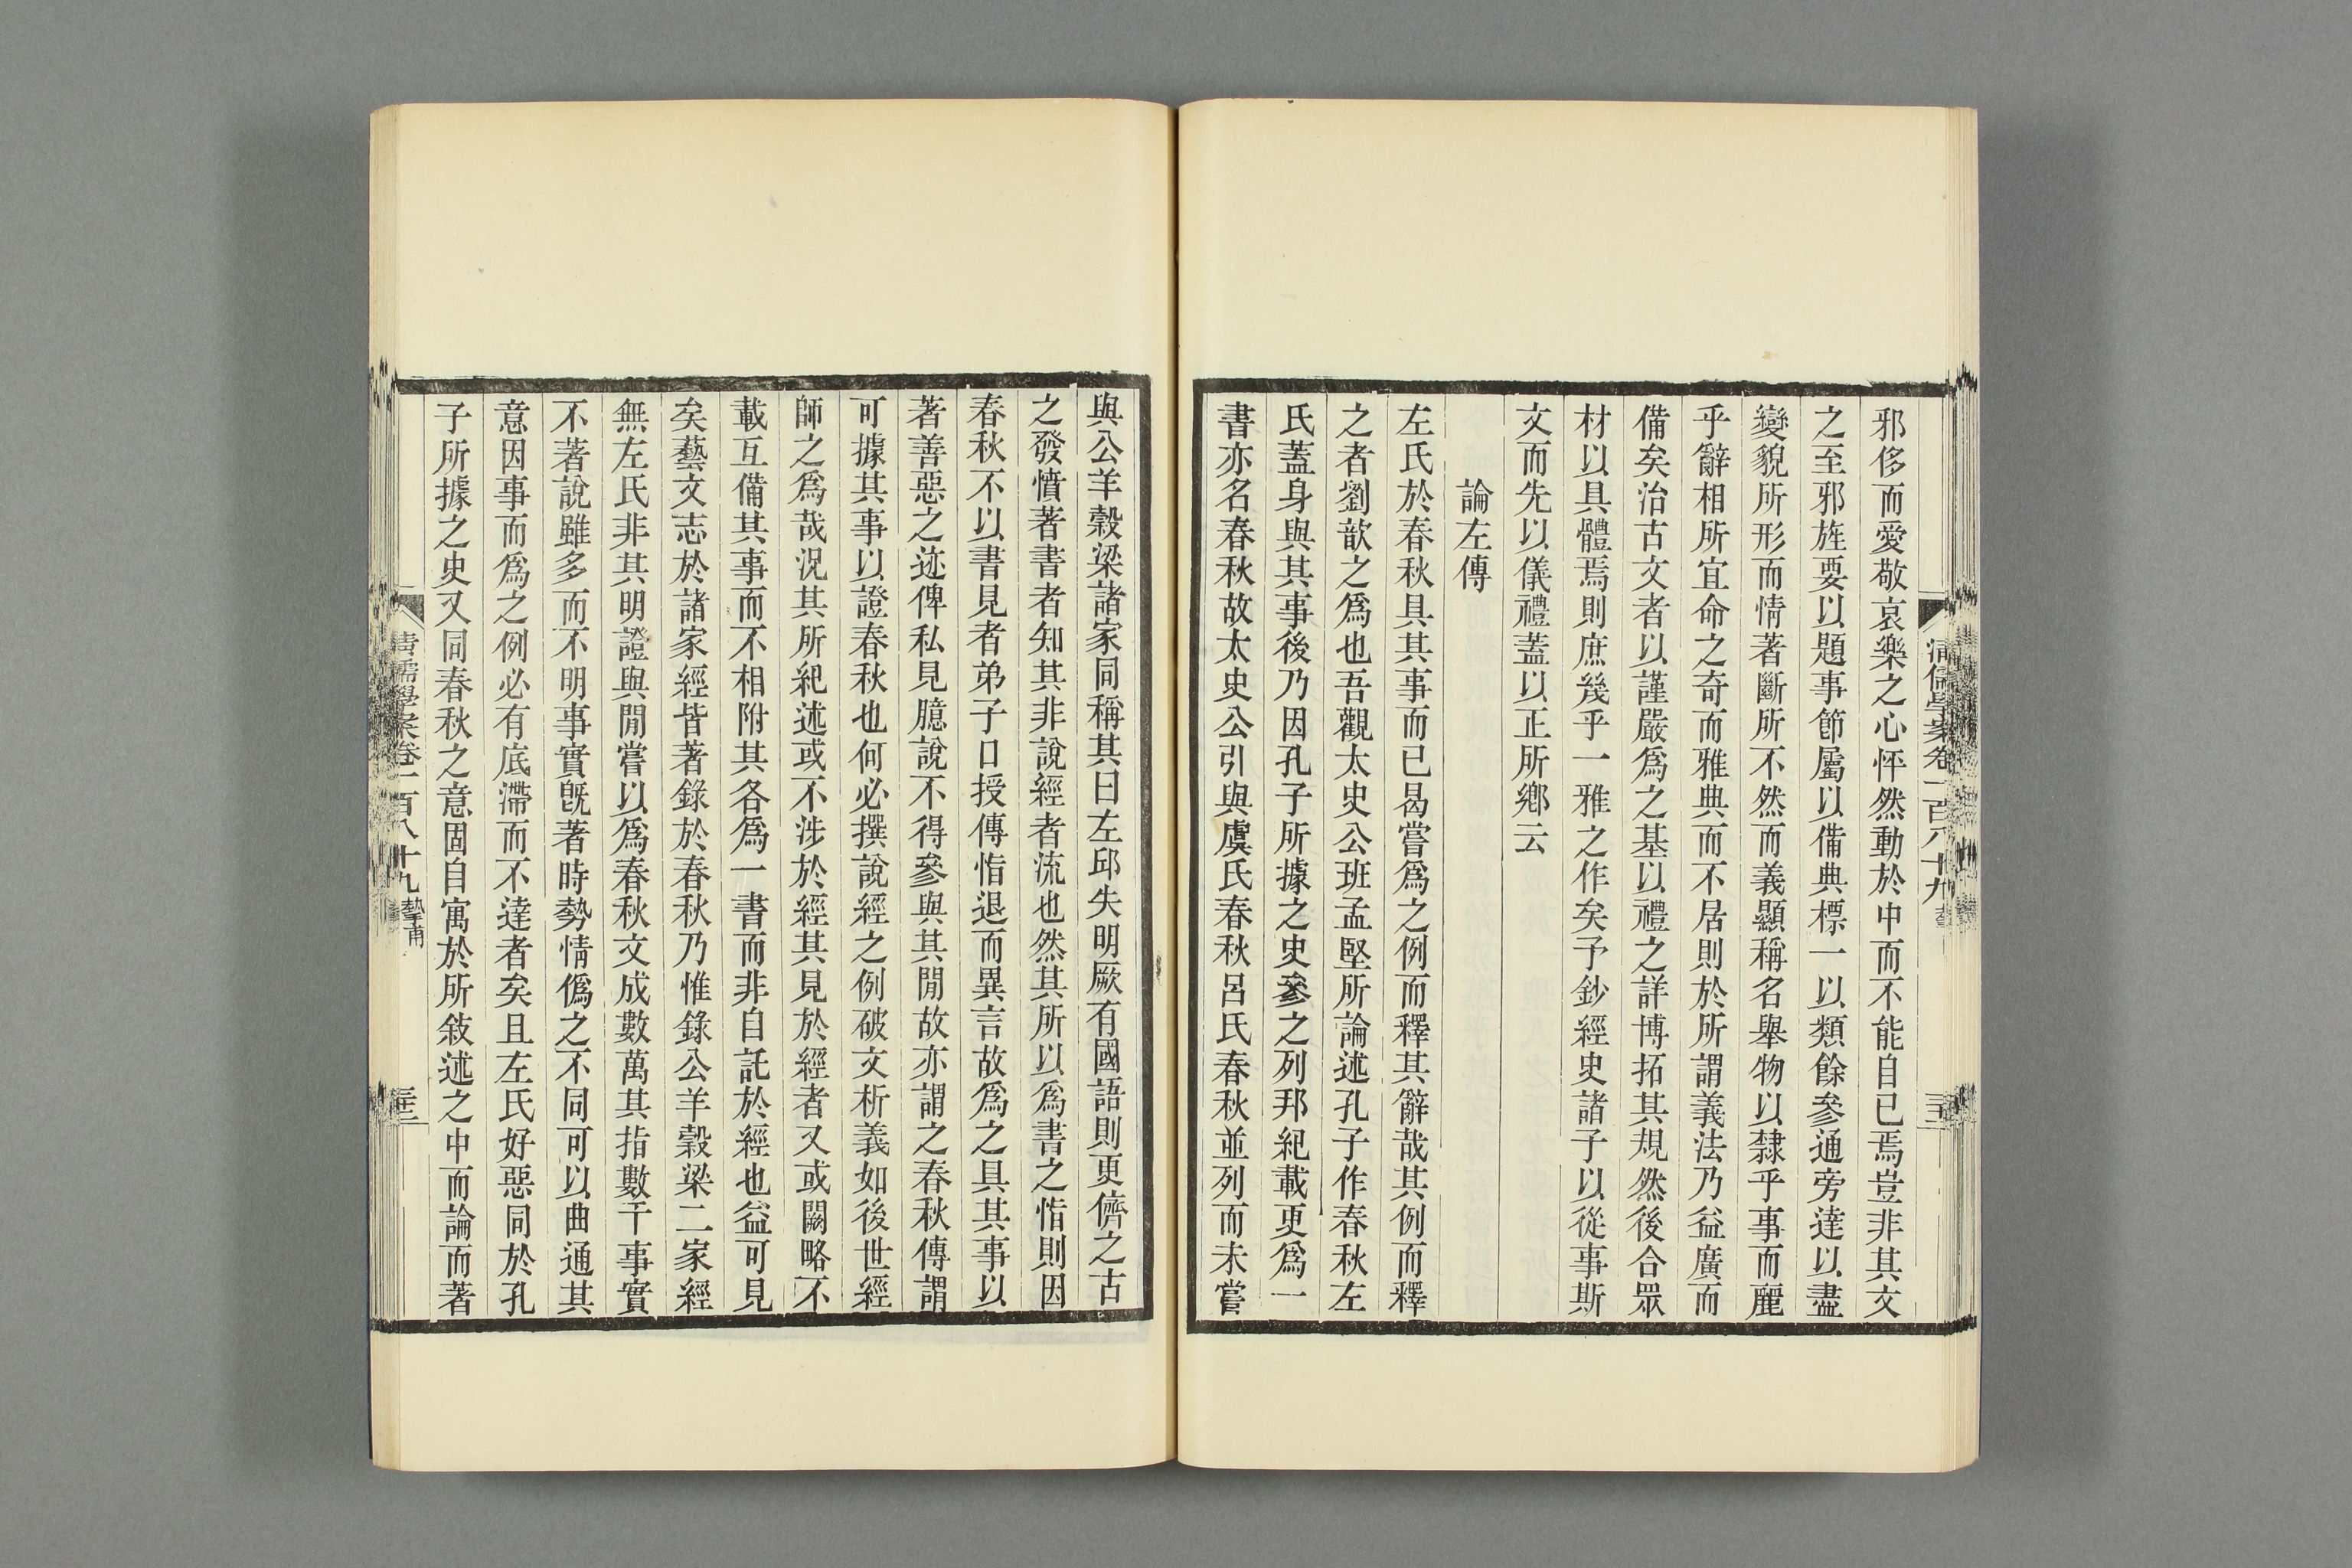 邪侈而愛敬哀樂之心怦然動於中而不能自已焉豈非其文
之至邪旌要以題事節屬以備典標一以類餘參通旁達以盡
變貌所形而情著斷所不然而義顯稱名舉物以隸乎事而麗
乎辭相所宜命之奇而雅典而不居則於所謂義法乃益廣而
備矣治古文者以謹嚴爲之基以禮之詳博拓其規然後合眾
材以具體焉則庶幾乎一雅之作矣予鈔經史諸子以從事斯
文而先以儀禮蓋以正所鄉云
論左傳
左氏於春秋具其事而已曷嘗爲之例而釋其辭哉其例而釋
之者劉歆之爲也吾觀太史公班孟堅所論述孔子作春秋左
氏蓋身與其事後乃因孔子所據之史參之列邦紀載更爲一
書亦名春秋故太史公引與虞氏春秋呂氏春秋並列而未嘗
與公羊穀梁諸家同稱其曰左邱失明厥有國語則更儕之古
之發憤著書者知其非說經者流也然其所以爲書之恉則因
春秋不以書見者弟子口授傳恉退而異言故爲之具其事以
著善惡之迹俾私見臆說不得參與其閒故亦謂之春秋傳謂
可據其事以證春秋也何必撰說經之例破文析義如後世經
師之爲哉況其所紀述或不涉於經其見於經者又或闕略不
載互備其事而不相附其各爲一書而非自託於經也益可見
矣藝文志於諸家經皆著錄於春秋乃惟錄公羊穀梁二家經
無左氏非其明證與閒嘗以爲春秋文成數萬其指數千事實
不著說雖多而不明事實既著時勢情僞之不同可以曲通其
意因事而爲之例必有底滯而不達者矣且左氏好惡同於孔
子所據之史又同春秋之意固自寓於所敍述之中而論而著
清儒學案卷一百八十九 摯甫